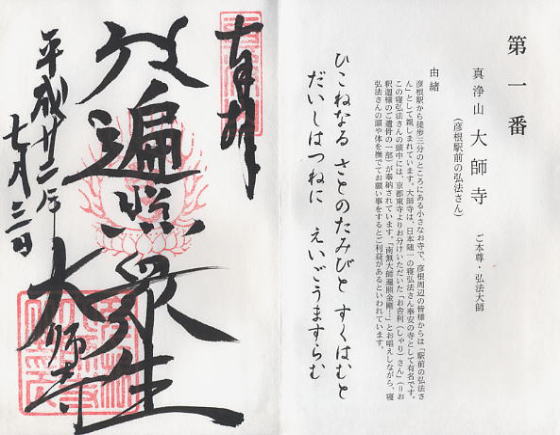 第一番
真浄山 大師寺 ご本尊・弘法大師
(彦根駅前の弘法さん)
由緒
彦根駅から徒歩三分のところにある小さなお寺で、彦根周辺の皆様からは「駅前の弘法さ
ん」として親しまれています。大師寺は、日本随一の寝弘法さん奉安の寺として有名です。
この寝弘法さんの頭中には、京都東寺よりお分けいただいた「お舎利(しゃり)さん」(=お
釈迦様のご遺骨の一部)が奉納されています。「南無大師遍照金剛!」とお唱えしながら、寝
弘法さんの頭や体を撫でてお願い事をするとご利益があるといわれています。
ひこねなる さとのたみびと すくはむと
だいしはつねに えいごうますらむ
奉拝
放遍照衆生
大師寺
平成廿二年
七月三日